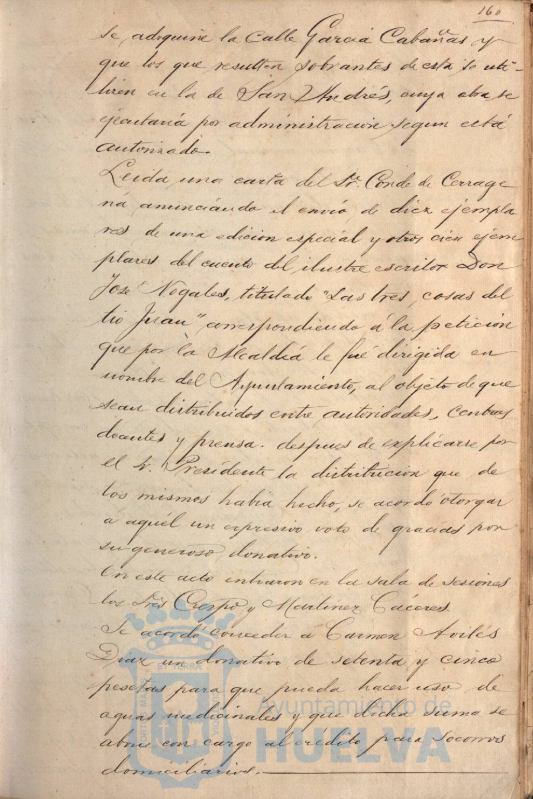 160
se adiquine la calle García Cabañas y
que los que resulten sobrantes de esta se uti-
licen en la de San Andrés, cuya obra se
ejecutaría por administracion, segun está
autorizado.
Leida una carta del Sr. Conde de Cerrage
na anunciando el envío de diez ejempla
res de una edicion especial y otros cien ejem
plares del cuento del ilustre escritor Don
José Nogales, titulado "Las tres cosas del
tio Juan", correspondiendo á la petición
que por la Alcaldía le fué dirigida en
nombre del Ayuntamiento, al objeto de que
sean distribuidos entre autoridades, Centros
docentes y prensa. despues de explicarse por
el Sr. Presidente la distribucion que de
los mismos había hecho, se acordó otorgar
á aquél un expresivo voto de gracias por
su generoso donativo.
En este acto entraron en la sala de sesiones
los Sres Crespo y Martinez Cáceres.
Se acordó conceder á Carmen Avilés
Diaz un donativo de setenta y cinco
pesetas para que pueda hacer uso de
aguas medicinales y que dicha suma se
abone con cargo al credito para socorros
domiciliarios.
Ayuntamiento de
HUELVA